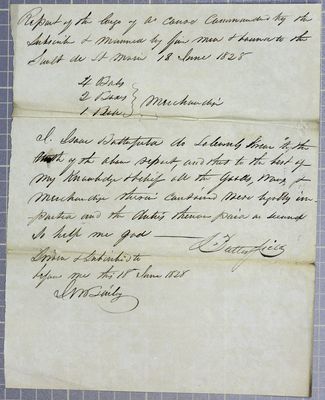 Report of the Cargo of a Canoe Commanded by the
Subscriber & manned by four men & bound to the
Sault de St Marie 18 June 1828
4 Bales
2 Boxes
1 Merchandise
I. Isaac Butterfield do Solemnly Swear to the
truth of the above report, and that to the best of
my Knowledge & belief all the Goods, Wares, &
Merchandise therein contained were legally im-
ported and the duties thereon paid or secured
So help me god
I. Butterfield
Sworn & Subscribed to
before me this 18 June 1828